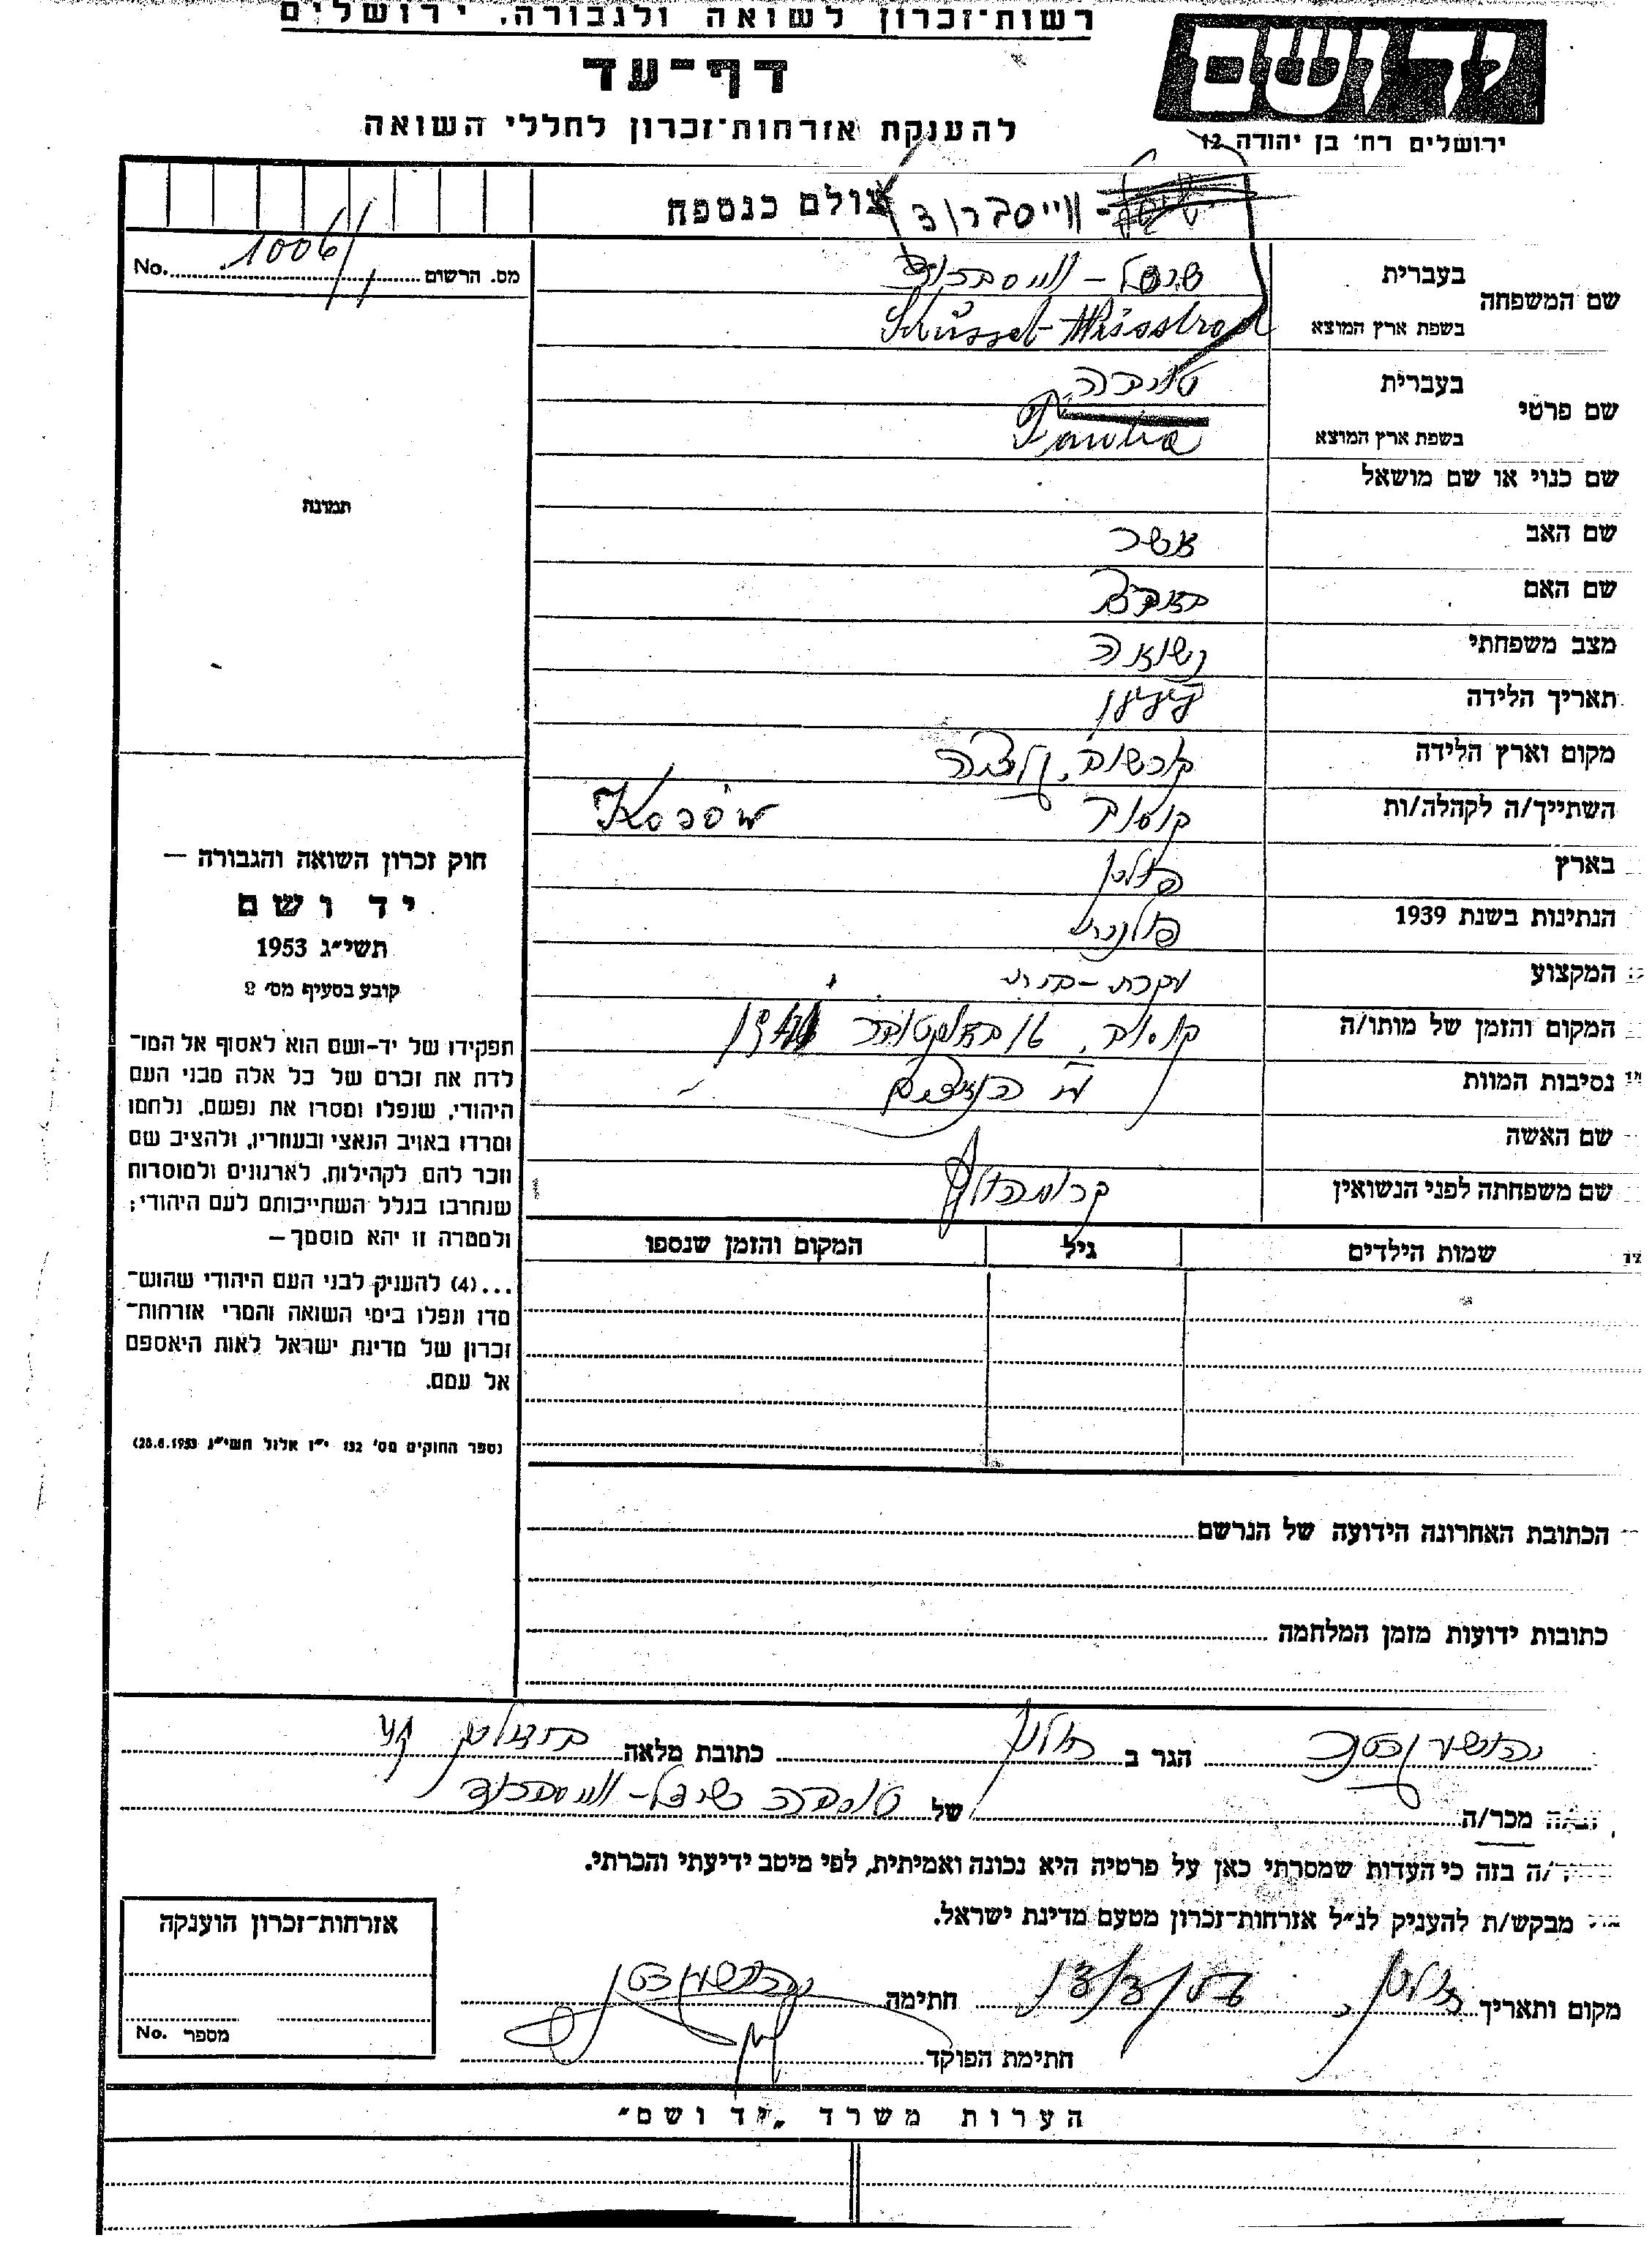 רשות־זכרון לשואה ולגבורה, ירושלים
דף־עד
להענקת אזרחות־זכרון לחללי השואה
יד ושם
ירושלים רח׳ בן יהודה 12
צולם כנספח
וייסברוד
No. 1006/
מס. הרשום
שם המשפחה
בעברית
שיסל - וייסברוד
בשפת ארץ המוצא
Schüssel-Weissbrod
שם פרטי
בעברית
טויבה
בשפת ארץ המוצא
Taube
שם כנוי או שם מושאל
שם האב
אשר
שם האם
מצב משפחתי
נשואה
תאריך הלידה
מקום וארץ הלידה
השתייך/ה לקהלה/ות
קוסוב
Kosów
בארץ
פולין
הנתינות בשנת 1939
פולנית
המקצוע
עקרת-בית
המקום והזמן של מותו/ה
קוסוב, אוקטובר 1941
נסיבות המוות
ע״י הנאצים
שם האשה
שם משפחתה לפני הנשואין
שמות הילדים
גיל
המקום והזמן שנספו
תמונה
חוק זכרון השואה והגבורה —
יד ושם
תשי״ג 1953
קובע בסעיף מס׳ 2
תפקידו של יד-ושם הוא לאסוף אל המו־
לדת את זכרם של כל אלה מבני העם
היהודי, שנפלו ומסרו את נפשם, נלחמו
ומרדו באויב הנאצי ובעוזריו, ולהציב שם
וזכר להם לקהילות, לארגונים ולמוסדות
שנחרבו בגלל השתייכותם לעם היהודי;
ולמטרה זו יהא מוסמך —
...(4) להעניק לבני העם היהודי שהוש־
מדו ונפלו בימי השואה והמרי אזרחות־
זכרון של מדינת ישראל לאות היאספם
אל עמם.
(ספר החוקים מס׳ 132 י״ז אלול תשי״ג 28.8.1953)
הכתובת האחרונה הידועה של הנרשם
כתובות ידועות מזמן המלחמה
הגר ב חולון כתובת מלאה
מכר/ה של טויבה שיסל - וייסברוד
/ה בזה כי העדות שמסרתי כאן על פרטיה היא נכונה ואמיתית, לפי מיטב ידיעתי והכרתי.
מבקש/ת להעניק לנ״ל אזרחות־זכרון מטעם מדינת ישראל.
מקום ותאריך חולון, חתימה
חתימת הפוקד
אזרחות־זכרון הוענקה
No. מספר
הערות משרד „יד ושם״